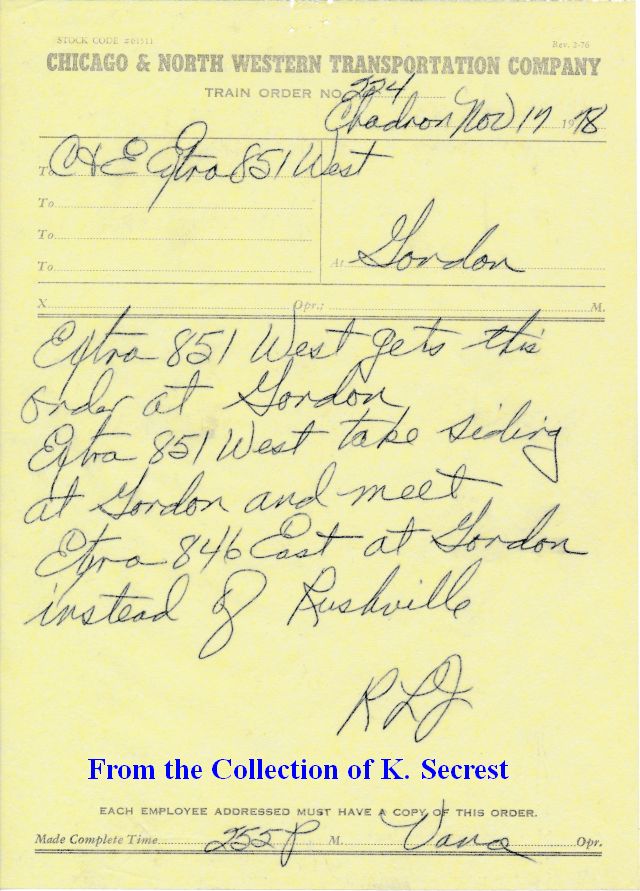 STOCK CODE #61511
Rev. 2-76
CHICAGO & NORTH WESTERN TRANSPORTATION COMPANY
TRAIN ORDER NO. 224
Chadron Nov 17 1978
To C&E Extra 851 West
To
To
To
At Gordon
X Opr.; M.
Extra 851 West gets this
order at Gordon
Extra 851 West take siding
at Gordon and meet
Extra 846 East at Gordon
instead of Rushville
RLJ
From the Collection of K. Secrest
EACH EMPLOYEE ADDRESSED MUST HAVE A COPY OF THIS ORDER.
Made Complete Time 255P M. Opr.